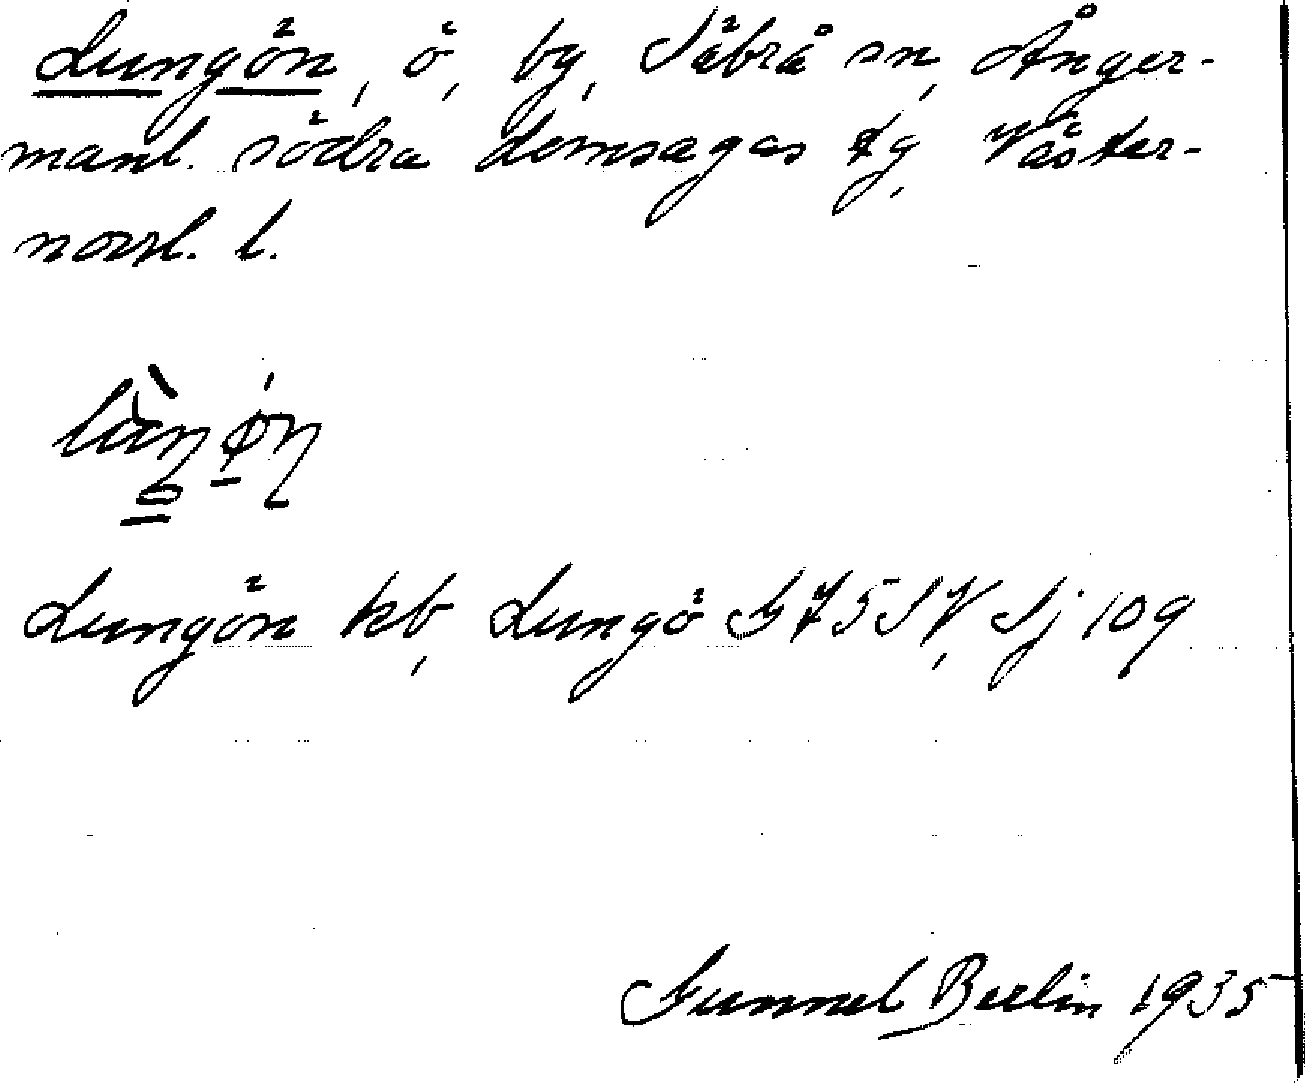 Lungön, ö, by, Säbrå sn, Ånger-
manl. södra domsagas tg, Väster-
norrl. l.
Lungön kb, Lungö G 75 SV, Sj 109
Gunnel Berlin 1935